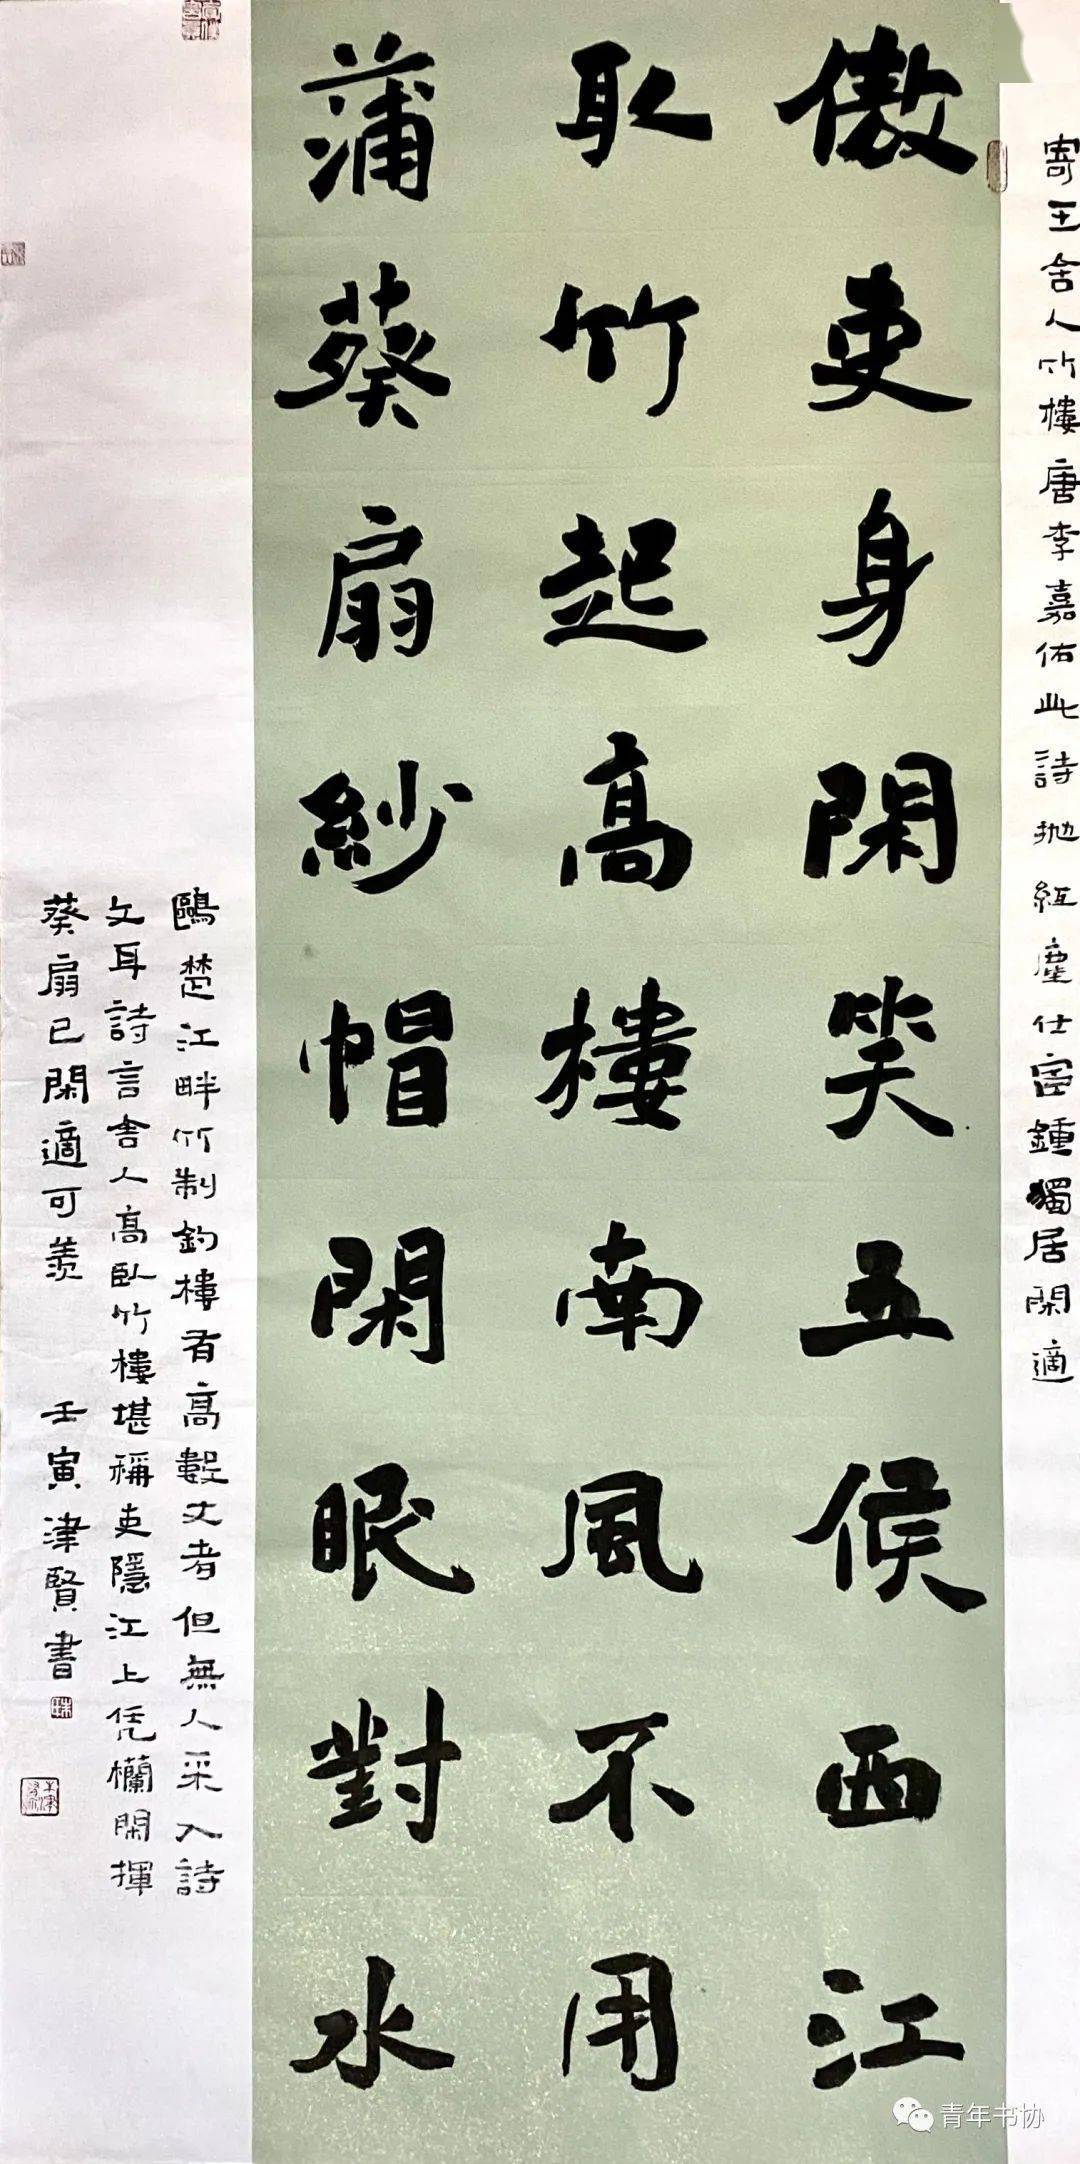 寄王舍人竹樓唐李嘉佑此詩拋紅塵仕宦鍾獨居閑適
傲吏身閑笑五侯西江
取竹起高樓南風不用
蒲葵扇紗帽閑眠對水
鷗楚江畔竹制釣樓有高數丈者但無人采入詩
文耳詩言舍人高臥竹樓堪稱吏隱江上凭欄閑揮
葵扇已閑適可羨 壬寅津賢書
青年书协